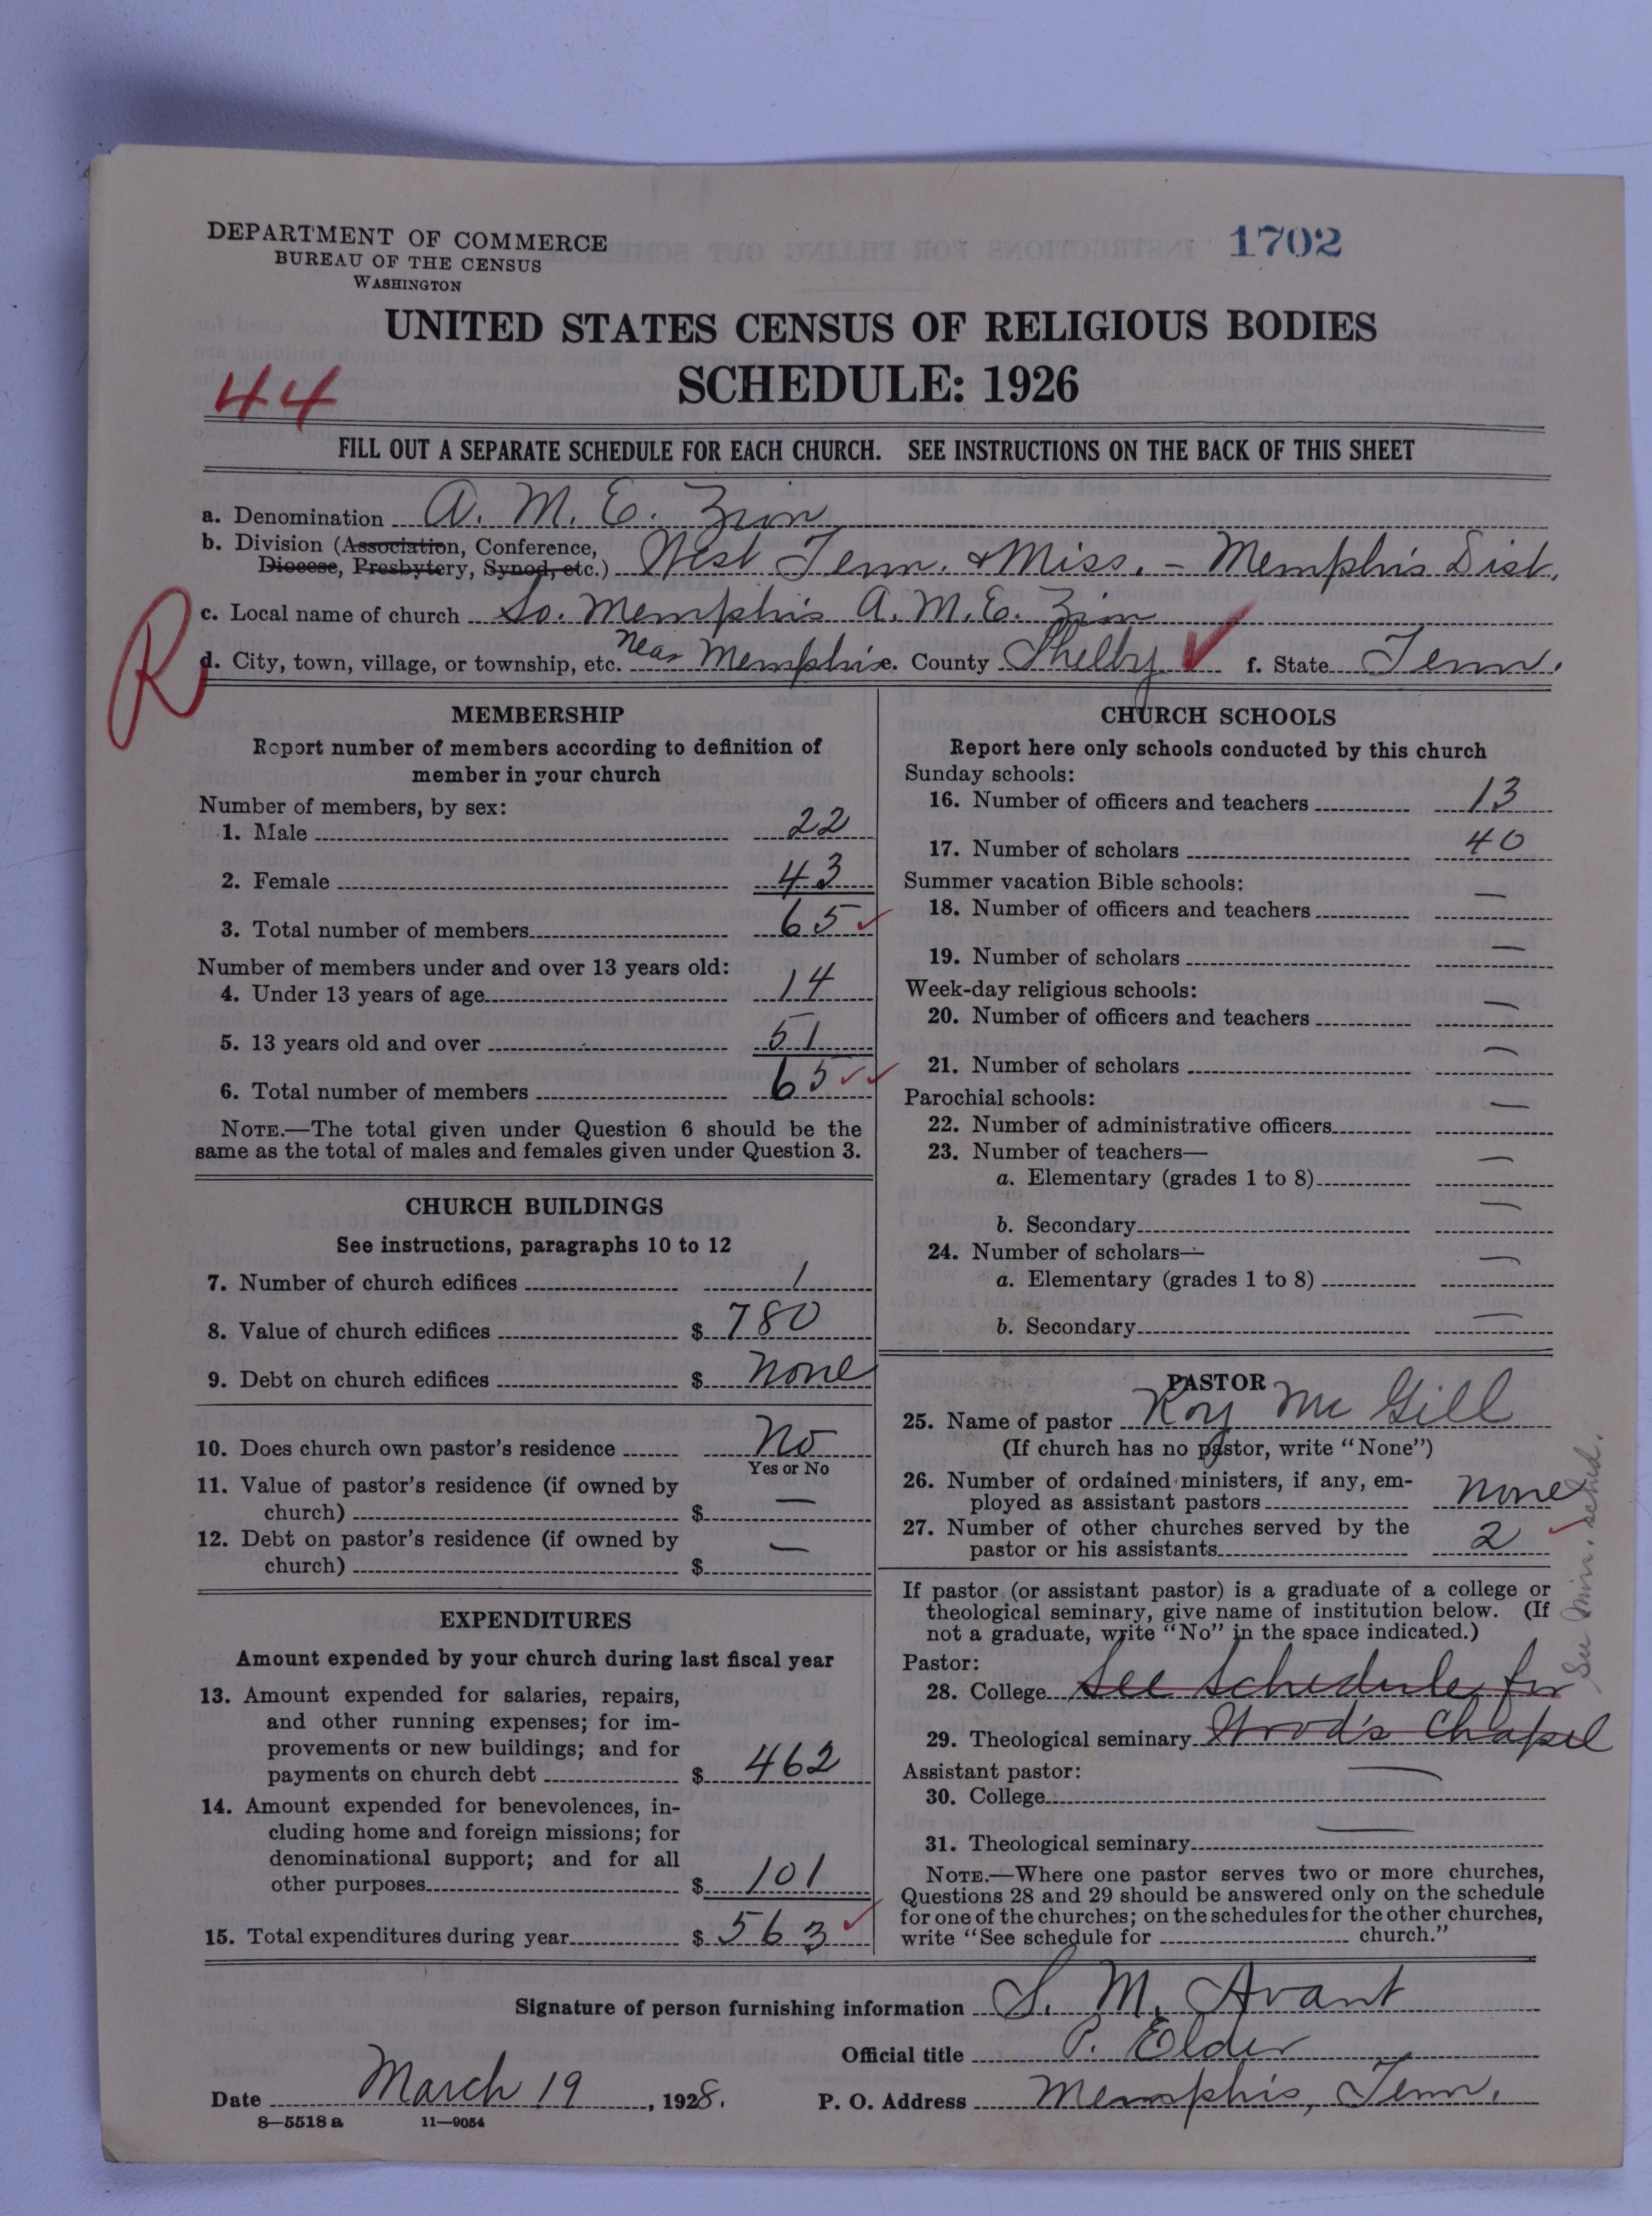 DEPARTMENT OF COMMERCE
BUREAU OF THE CENSUS
WASHINGTON
1702
UNITED STATES CENSUS OF RELIGIOUS BODIES
SCHEDULE: 1926
44
FILL OUT A SEPARATE SCHEDULE FOR EACH CHURCH. SEE INSTRUCTIONS ON THE BACK OF THIS SHEET
a. Denomination A. M. E. Zion
b. Division (Association, Conference,
Diocese, Presbytery, Synod, etc.) West Tenn. & Miss. - Memphis Dist.
c. Local name of church So. Memphis A. M. E. Zion
R
d. City, town, village, or township, etc. Near Memphis e. County Shelby f. State Tenn.
MEMBERSHIP
Report number of members according to definition of
member in your church
Number of members, by sex:
1. Male 22
2. Female 43
3. Total number of members 65
Number of members under and over 13 years old:
4. Under 13 years of age 14
5. 13 years old and over 51
6. Total number of members 65
NOTE.—The total given under Question 6 should be the
same as the total of males and females given under Question 3.
CHURCH BUILDINGS
See instructions, paragraphs 10 to 12
7. Number of church edifices 1
8. Value of church edifices $ 780
9. Debt on church edifices $ None
10. Does church own pastor's residence No
Yes or No
11. Value of pastor's residence (if owned by
church) $ —
12. Debt on pastor's residence (if owned by
church) $ —
EXPENDITURES
Amount expended by your church during last fiscal year
13. Amount expended for salaries, repairs,
and other running expenses; for im-
provements or new buildings; and for
payments on church debt $ 462
14. Amount expended for benevolences, in-
cluding home and foreign missions; for
denominational support; and for all
other purposes $ 101
15. Total expenditures during year $ 563
CHURCH SCHOOLS
Report here only schools conducted by this church
Sunday schools:
16. Number of officers and teachers 13
17. Number of scholars 40
Summer vacation Bible schools:
18. Number of officers and teachers —
19. Number of scholars —
Week-day religious schools:
20. Number of officers and teachers —
21. Number of scholars —
Parochial schools:
22. Number of administrative officers —
23. Number of teachers—
a. Elementary (grades 1 to 8) —
b. Secondary —
24. Number of scholars—
a. Elementary (grades 1 to 8) —
b. Secondary —
PASTOR
25. Name of pastor Roy Mc Gill
(If church has no pastor, write "None")
26. Number of ordained ministers, if any, em-
ployed as assistant pastors None
27. Number of other churches served by the
pastor or his assistants 2
See Min. sched.
If pastor (or assistant pastor) is a graduate of a college or
theological seminary, give name of institution below. (If
not a graduate, write "No" in the space indicated.)
Pastor:
28. College See Schedule for
29. Theological seminary Wood's Chapel
Assistant pastor:
30. College —
31. Theological seminary —
NOTE.—Where one pastor serves two or more churches,
Questions 28 and 29 should be answered only on the schedule
for one of the churches; on the schedules for the other churches,
write "See schedule for church."
Signature of person furnishing information S. M. Avant
Official title P. Elder
Date March 19, 1928. P. O. Address Memphis, Tenn.
8—5518 a 11—9054